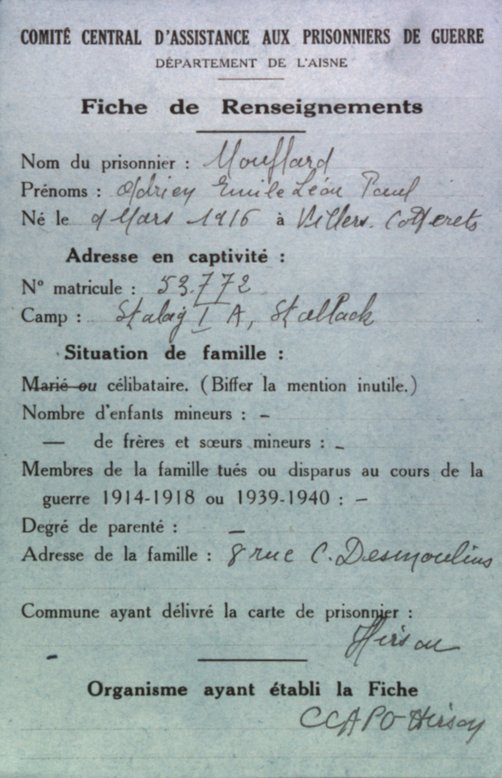 COMITÉ CENTRAL D'ASSISTANCE AUX PRISONNIERS DE GUERRE
DÉPARTEMENT DE L'AISNE
Fiche de Renseignements
Nom du prisonnier : Mouflard
Prénoms : Adrien Emile Léon Paul
Né le 9 Mars 1916 à Villers. Cotterets
Adresse en captivité :
N° matricule : 53.772
Camp : Stalag I A, Stablack
Situation de famille :
Marié ou célibataire. (Biffer la mention inutile.)
Nombre d'enfants mineurs : –
— de frères et sœurs mineurs : –
Membres de la famille tués ou disparus au cours de la
guerre 1914-1918 ou 1939-1940 : –
Degré de parenté : –
Adresse de la famille : 8 rue C. Desmoulins
Commune ayant délivré la carte de prisonnier :
Hirson
Organisme ayant établi la Fiche
CCAPG Hirson